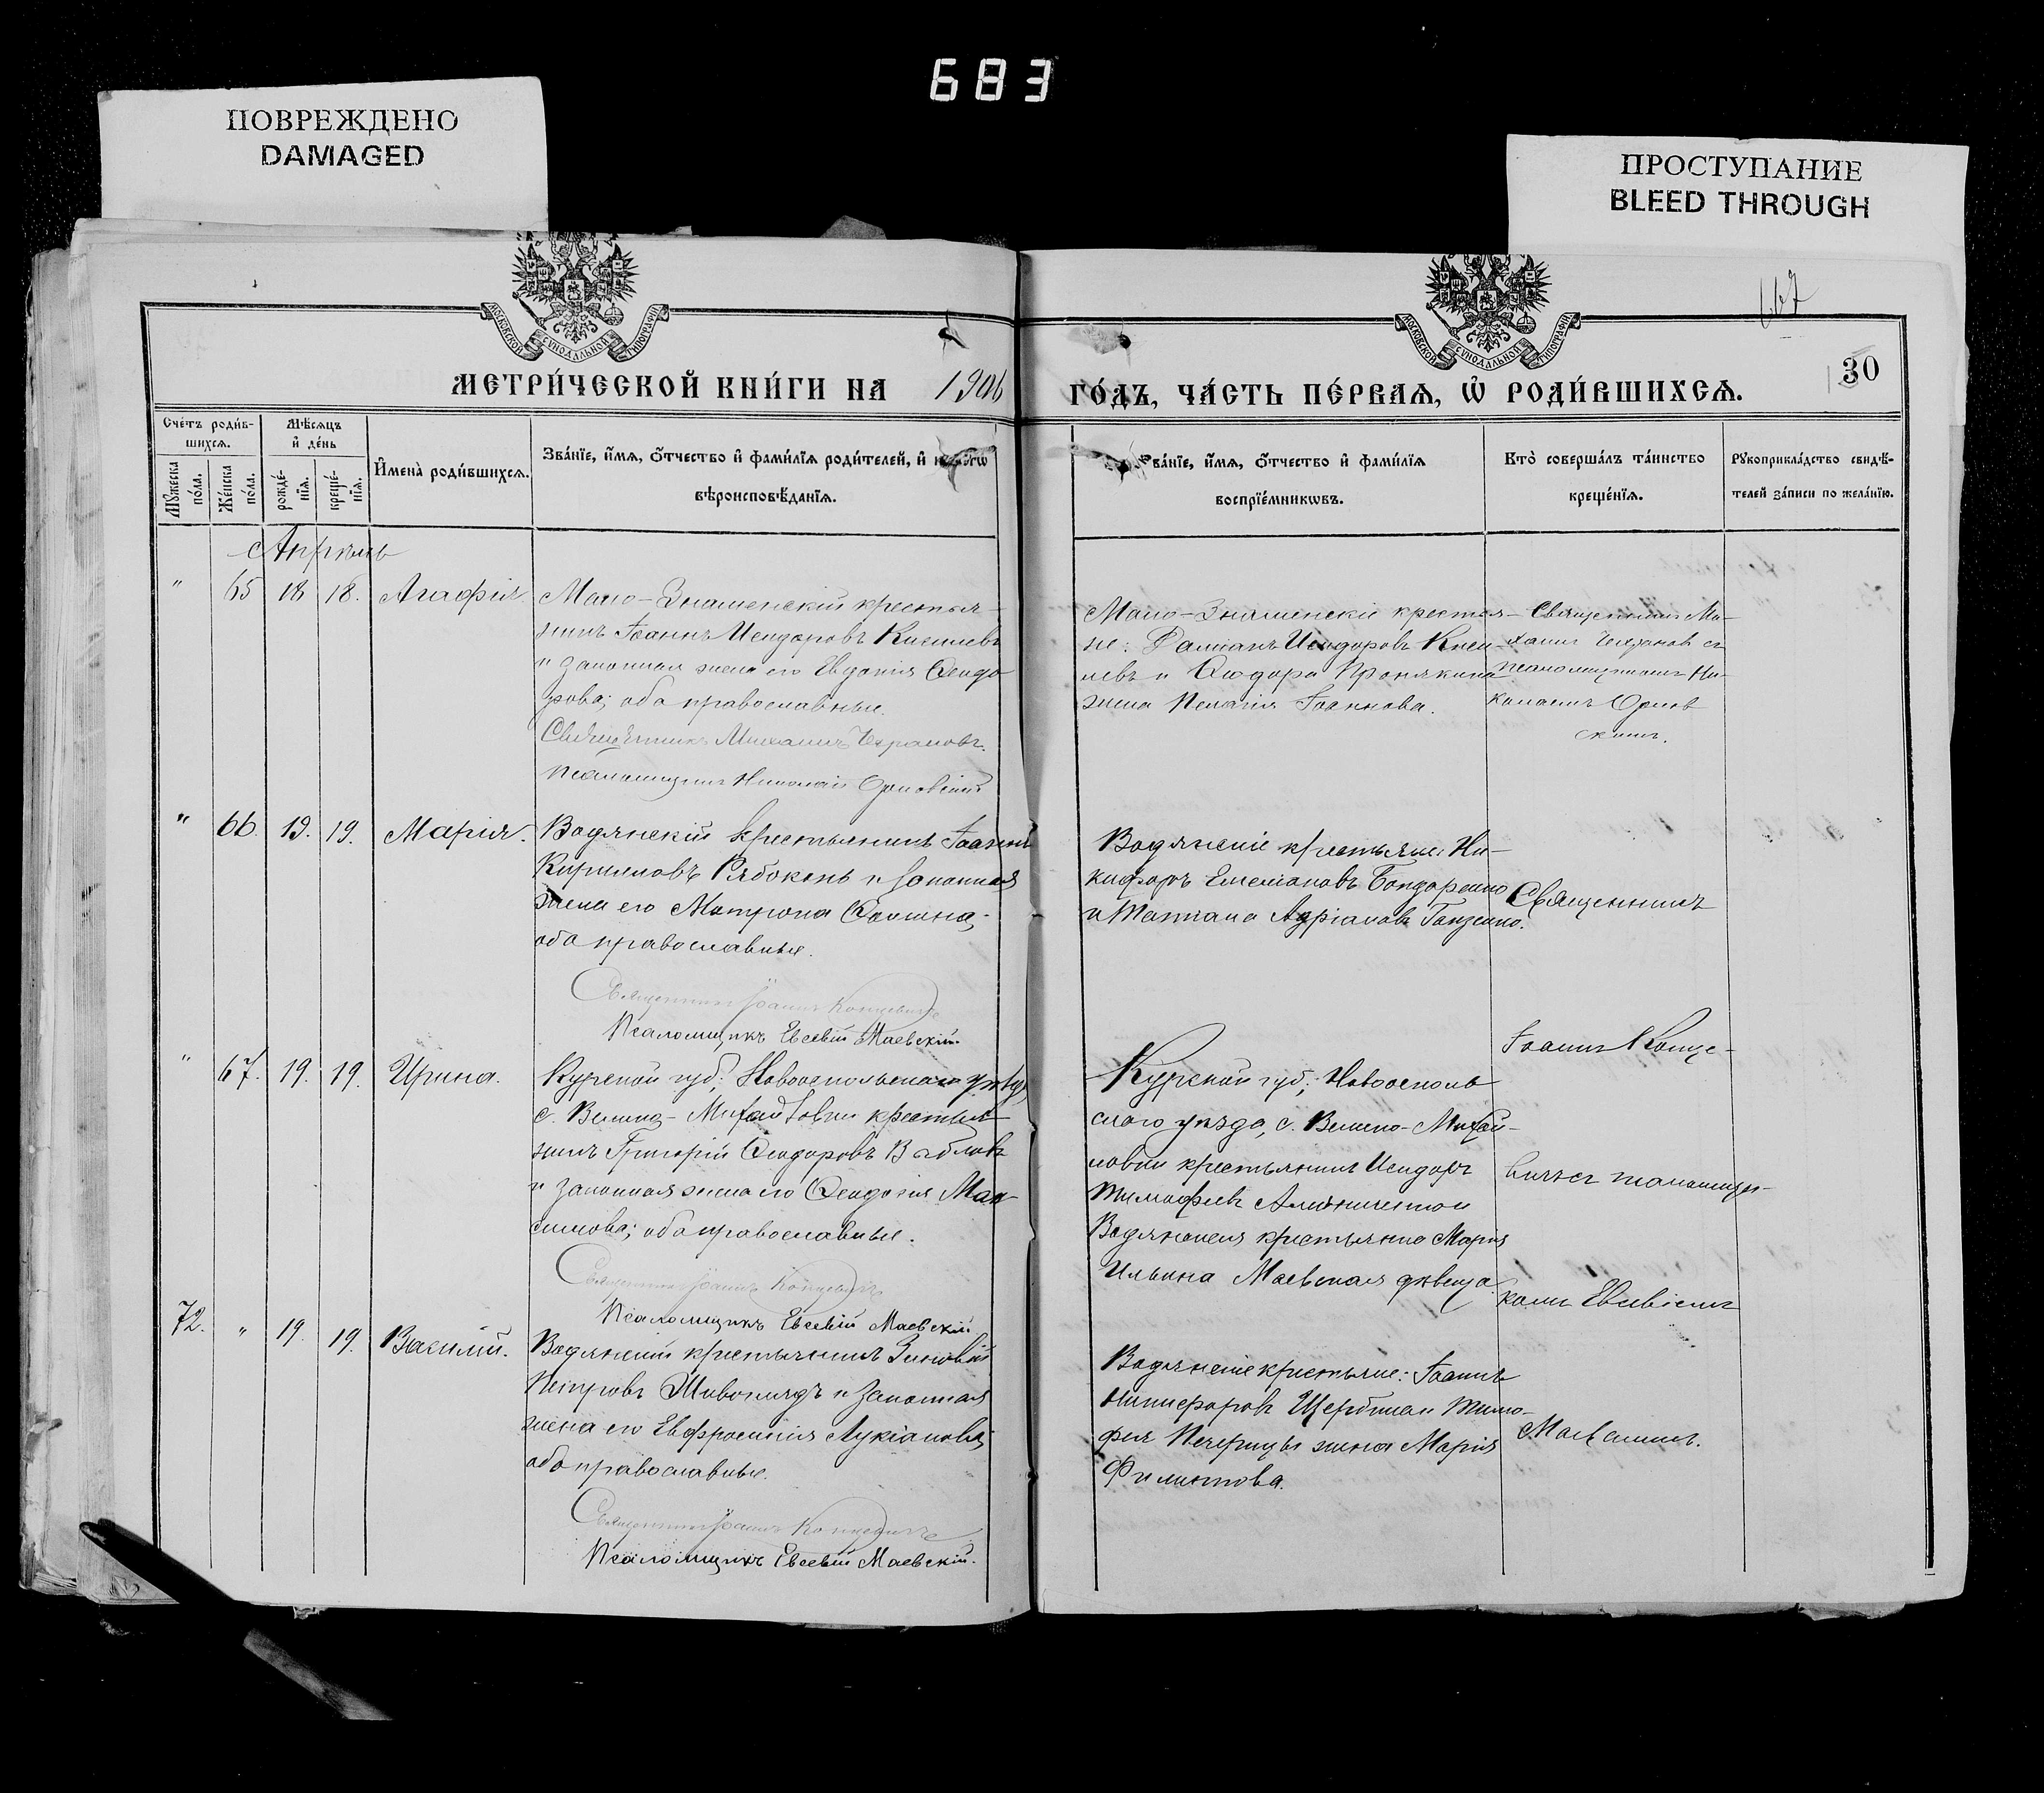 683
ПОВРЕЖДЕНО
DAMAGED
ПРОСТУПАНИЕ
BLEED THROUGH
МОСКОВСКОЙ СУНОДАЛЬНОЙ ТИПОГРАФІИ
МОСКОВСКОЙ СУНОДАЛЬНОЙ ТИПОГРАФІИ
30
МЕТРИ́ЧЕСКОЙ КНИ́ГИ НА 1906 ГО́ДЪ, ЧА́СТЬ ПЕ́РВАѦ, Ѡ҆ РОДИ́ВШИХСѦ.
Сче́тъ роди́в-
шихсѧ.
Мѣ́сѧцъ
и҆ де́нь
Мꙋ́жеска
по́ла.
Же́нска
по́ла.
рожде́-
нїѧ.
креще́-
нїѧ.
И҆мена̀ роди́вшихсѧ.
Зва́нїе, и҆́мѧ, ѻ҆́тчество и҆ фами́лїѧ роди́телей, и҆
вѣроисповѣ́данїѧ.
ва́нїе, и҆́мѧ, ѻ҆́тчество и҆ фами́лїѧ
воспрїе́мникѡвъ.
Кто̀ соверша́лъ та́инство
креще́нїѧ.
Рꙋкоприкла́дство свидѣ́-
телей за́писи по жела́нїю.
Апрѣль
" 65 18 18. Агафія. Мало-Знаменскій крестья-
нинъ Іоаннъ Исидоровъ Киселевъ
и законная жена его Евдокія Ѳеодо
рова; оба православные.
Священникъ Михаилъ
Псаломщикъ Николай Орловскій
Мало-Знаменскіе крестья-
не: Даміанъ Исидоровъ Кисе-
левъ и Ѳеодора Пронякина
жена Пелагія Іоаннова.
Священникъ Ми-
хаилъ съ
псаломщикомъ Ни-
колаемъ Орлов
скимъ.
" 66. 19. 19. Марія. Водянскій крестьянинъ Іоаннъ
Кирилловъ Рябоконь и законная
жена его Матрона
оба православные.
Священникъ Іоаннъ Концевичъ
Псаломщикъ Евсевій Маевскій.
Водянскіе крестьяне: Ни-
кифоръ Емеліановъ Бондаренко
и Татіана Адріанова Ганженко.
Священникъ
" 67. 19. 19. Ирина. Курской губ; Новооскольскаго уѣзда,
с. Велико-Михайловки крестья
нинъ Григорій Ѳеодоровъ
и законная жена его Ѳеодосія Мак-
симова; оба православные.
Священникъ Іоаннъ Концевичъ
Псаломщикъ Евсевій Маевскій
Курской губ; Новоосколь
скаго уѣзда, с. Велико-Михай-
ловки крестьянинъ Исидоръ
Тимофеевъ
Водянская крестьянка Марія
Ильина Маевская дѣвица.
Іоаннъ Конце-
вичъ съ псаломщи-
комъ Евсевіемъ
72. " 19. 19. Василій. Водянскій крестьянинъ Зиновій
Петровъ и законная
жена его Евфросинія Лукіанова;
оба православные.
Священникъ Іоаннъ Концевичъ
Псаломщикъ Евсевій Маевскій.
Водянскіе крестьяне: Іоаннъ
Никифоровъ Щербина и Тимо-
фея Печерицы жена Марія
Филиппова.
Маевскимъ.